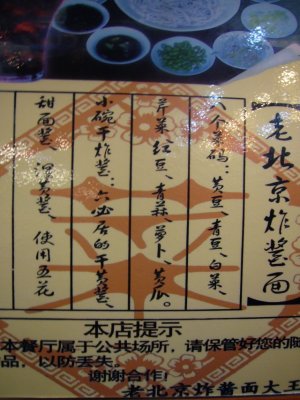 【老北京炸酱面】
八个菜码：黄豆、青豆、白菜、
芹菜、红豆、青蒜、萝卜、黄瓜。
小碗干炸酱：六必居的干黄酱、
甜面酱、湿黄酱、使用五花
本店提示
本餐厅属于公共场所，请保管好您的随
品，以防丢失。
谢谢合作！
老北京炸酱面大王